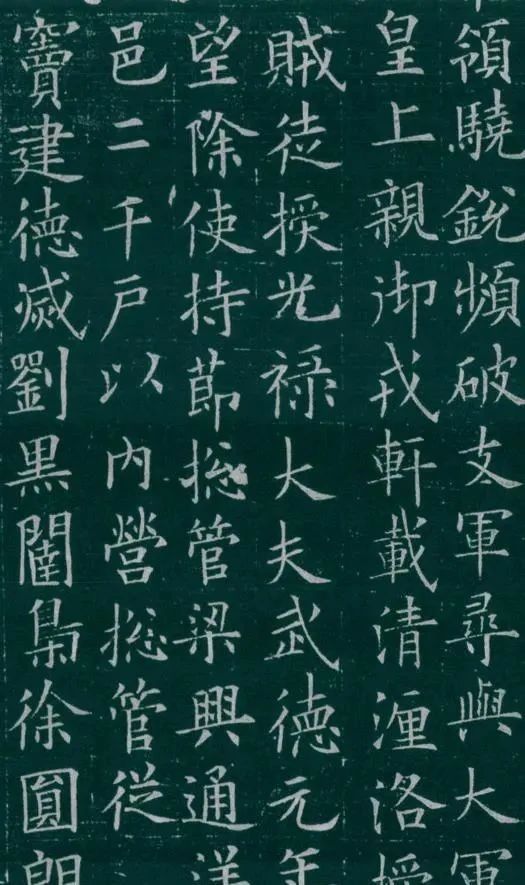 領驍銳頻破支軍尋與大軍
皇上親御戎軒載清瀍洛授
賊徒授光祿大夫武德元年
望除使持節揔管梁興通洋
邑二千戶以內營揔管從
竇建德滅劉黑闥梟徐圓朗